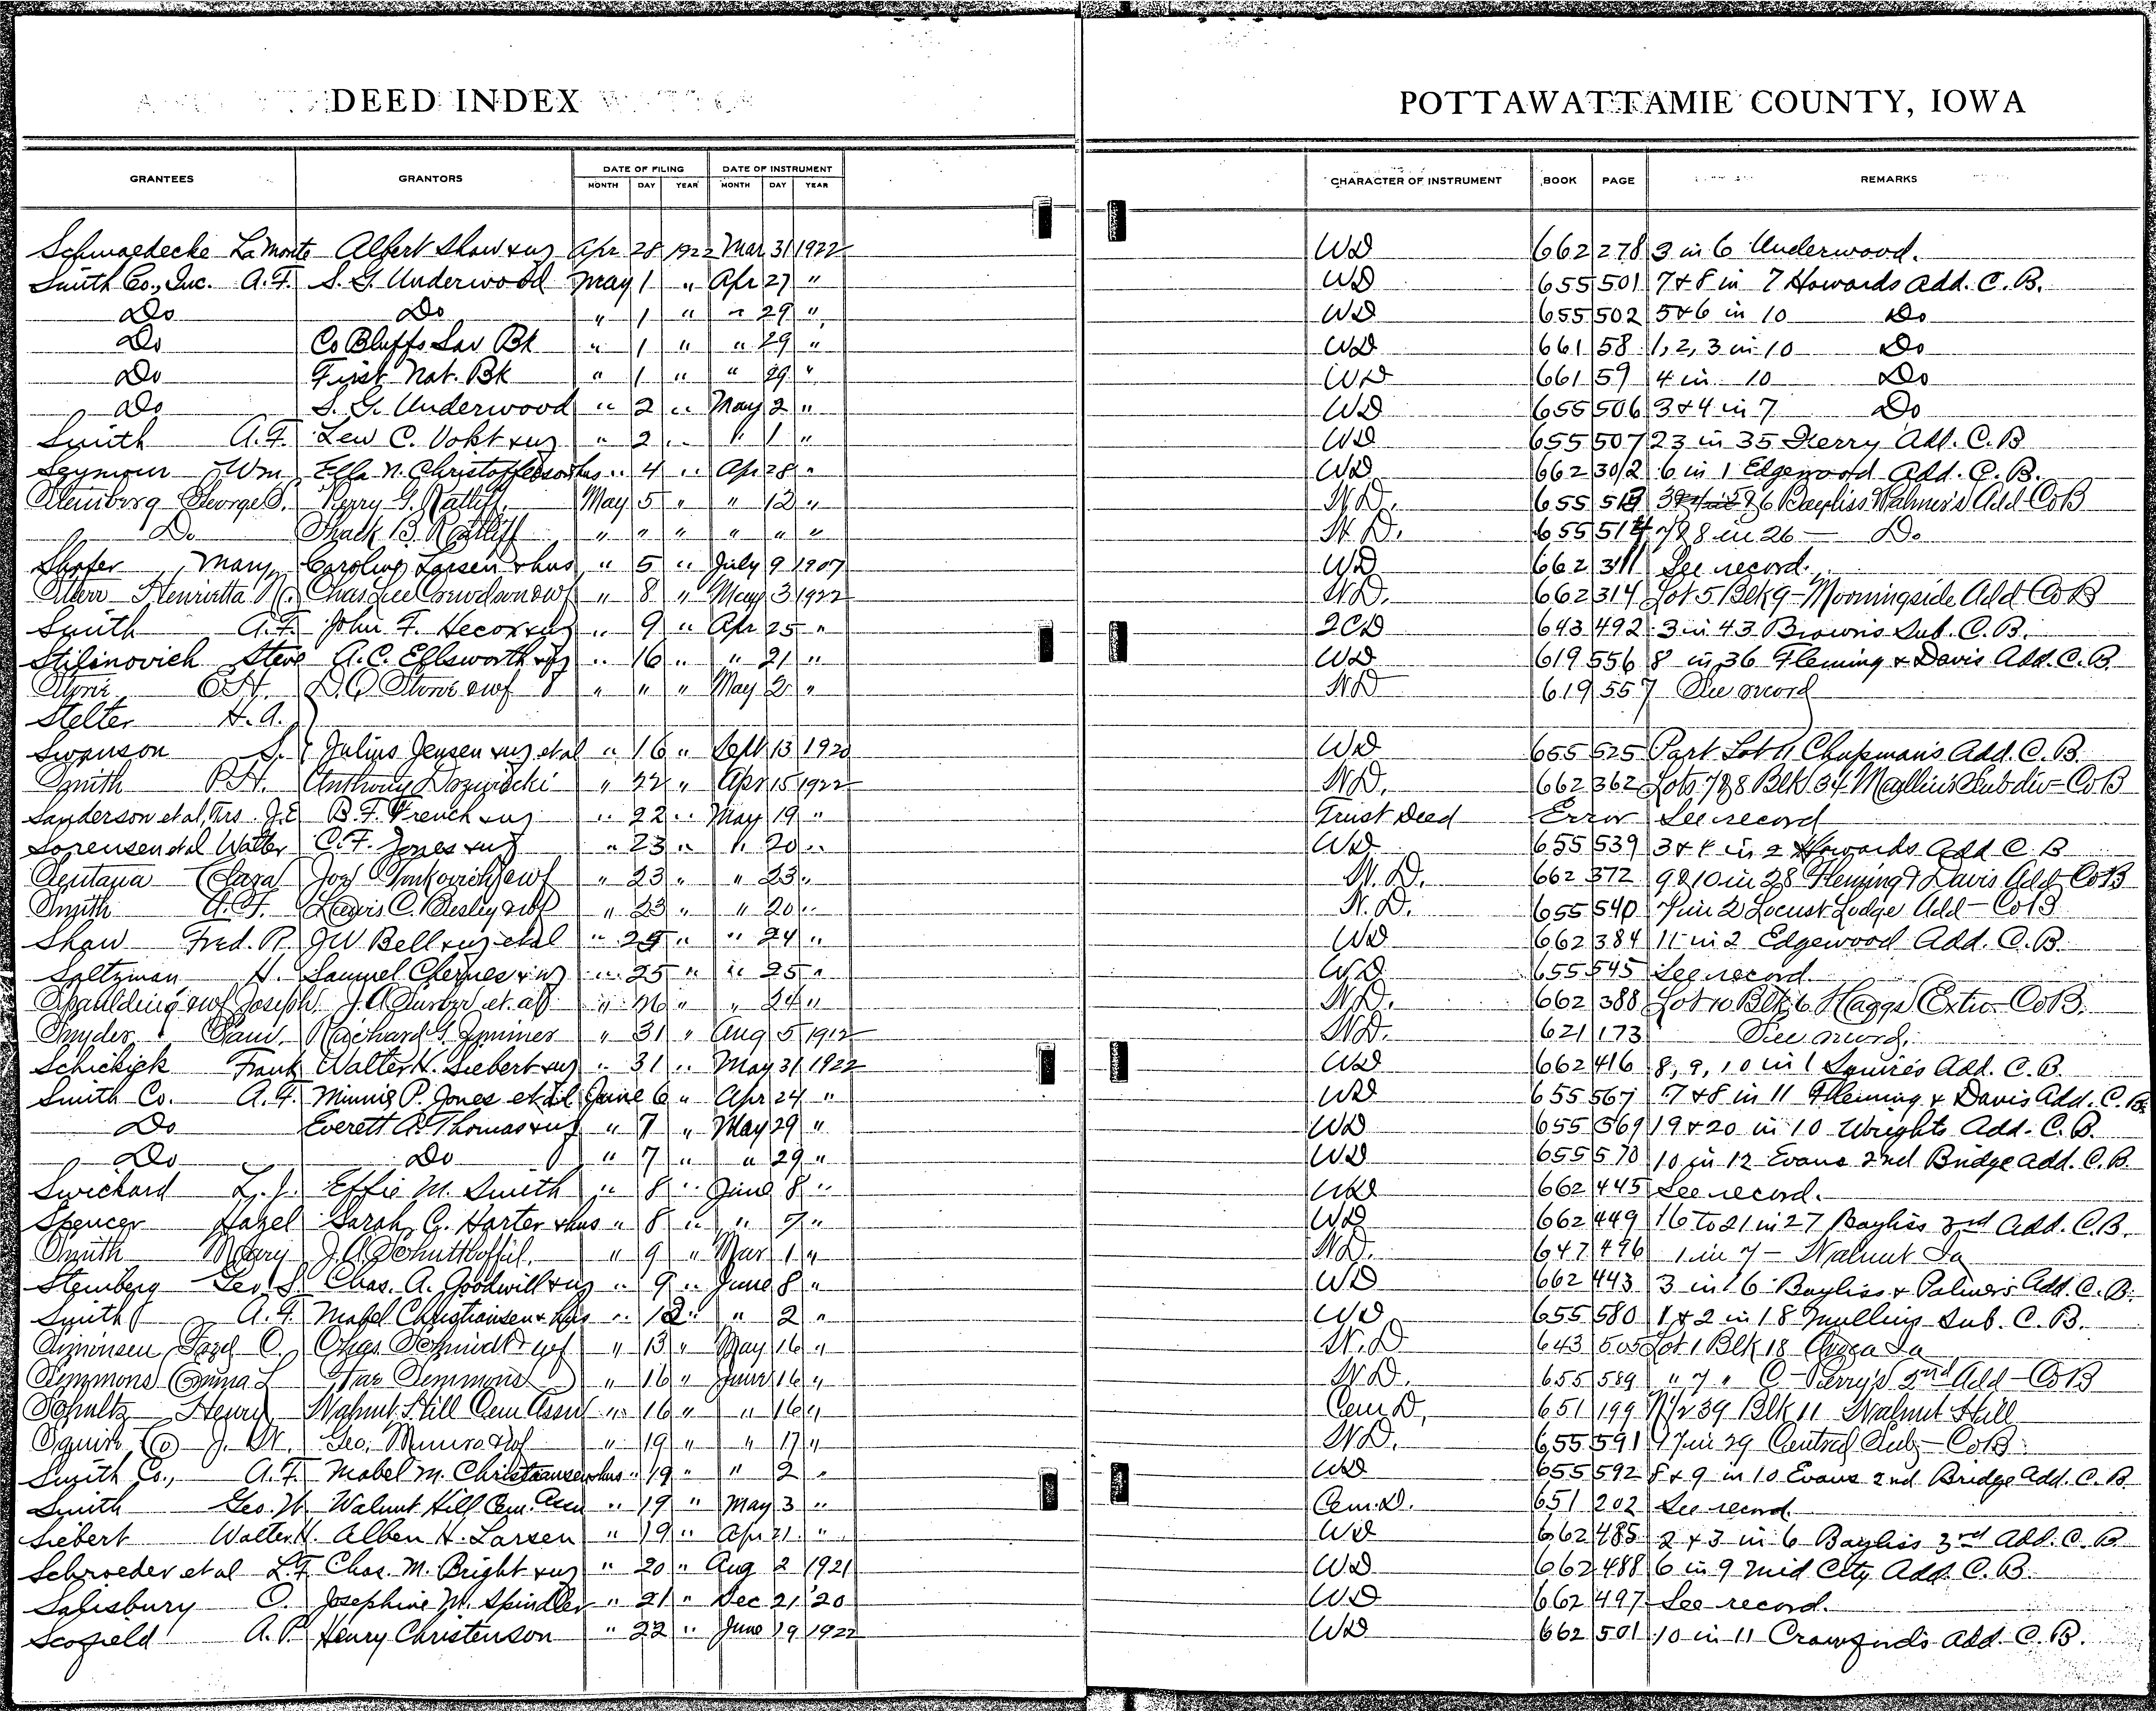 DEED INDEX
POTTAWATTAMIE COUNTY, IOWA
GRANTEES GRANTORS DATE OF FILING DATE OF INSTRUMENT CHARACTER OF INSTRUMENT BOOK PAGE REMARKS
MONTH DAY YEAR MONTH DAY YEAR
Schmaedecke La Monte Albert Shaw & ux Apr 28 1922 Mar 31 1922 WD 662 278 3 in 6 Underwood.
Smith Co., Inc. A.F. S. G. Underwood May 1 " Apr 27 " WD 655 501 7 & 8 in 7 Howards Add. C. B.
Do Do " 1 " " 29 " WD 655 502 5 & 6 in 10 Do
Do Co Bluffs Sav Bk " 1 " " 29 " WD 661 58 1, 2, 3 in 10 Do
Do First Nat. Bk " 1 " " 29 " WD 661 59 4 in 10 Do
Do S. G. Underwood " 2 " May 2 " WD 655 506 3 & 4 in 7 Do
Smith A.F. Lew C. Vokt & ux " 2 " " 1 " WD 655 507 23 in 35 Ferry Add. C. B
Seymour Wm Ella N. Christoffersen & hus " 4 " Apr 28 " WD 662 302 6 in 1 Edgewood Add. C. B.
George S. Perry G. Ratliff May 5 " " 12 " W.D. 655 513 6 Bayliss & Palmer's Add Co B
Do Shack B. Ratliff " " " " " " W.D. 655 514 7 & 8 in 26 — Do
Shafer Mary Caroline Larsen & hus " 5 " July 9 1907 WD 662 311 See record.
Henrietta Chas Lee Crewdson & wf " 8 " May 3 1922 W.D. 662 314 Lot 5 Blk 9 - Morningside Add Co B
Smith A.F. John F. Hecox & ux " 9 " Apr 25 " QCD 643 492 3 in 43 Browns Sub. C. B.
Stilinovich Steve A.C. Ellsworth & ux " 16 " " 21 " WD 619 556 8 in 36 Fleming & Davis Add. C. B.
Stone E.H. D.C. Stone & wf " " " May 2 " W.D 619 557 See record
Stelter H. A.
Swanson S. Julius Jensen & ux et al " 16 " Sept 13 1920 WD 655 525 Part Lot 11 Chapman's Add. C. B.
Smith P.H. Anthony " 22 " Apr 15 1922 W.D. 662 362 Lots 7 & 8 Blk 34 Mullin's Subdiv - Co B
Sanderson et al, Trs. J.E B. F. French & ux " 22 " May 19 " Trust Deed Error See record
Sorensen et al Walter C. F. Jones & ux " 23 " " 20 " WD 655 539 3 & 4 in 2 Howards Add C B
Clara Joe & wf " 23 " " 23 " W. D. 662 372 9 & 10 in 28 Fleming & Davis Add - Co B
Smith A.F. Lewis C. Besley & wf " 23 " " 20 " W. D. 655 540 7 in 2 Locust Lodge Add - Co B
Shaw Fred. R. J W Bell & ux et al " 25 " " 24 " WD 662 384 11 in 2 Edgewood Add. C. B.
Saltzman H. Samuel Chernes & ux " 25 " " 25 " WD 655 545 See record
Spaulding & wf Joseph J. A. et al " 26 " " 24 " W.D. 662 388 Lot 10 Blk 6 Haggs Extn - Co B.
Snyder Paul Richard G. " 31 " Aug 5 1912 W.D. 621 173 See record.
Schickjck Frank Walter H. Siebert & ux " 31 " May 31 1922 WD 662 416 8, 9, 10 in 1 Squires Add. C. B.
Smith Co. A. F. Minnie P. Jones et al June 6 " Apr 24 " WD 655 567 7 & 8 in 11 Fleming & Davis Add. C. B.
Do Everett A. Thomas & ux " 7 " May 29 " WD 655 569 19 & 20 in 10 Wrights Add. C. B.
Do Do " 7 " " 29 " WD 655 570 10 in 12 Evans 2nd Bridge Add. C. B.
Swichard L. J. Effie M. Smith " 8 " June 8 " WD 662 445 See record.
Spencer Hazel Sarah C. Harter & hus " 8 " " 7 " WD 662 449 16 to 21 in 27 Bayliss 3rd Add. C. B.
Smith Mary J. A. " 9 " Mar 1 " W.D. 647 496 1 in 7 - Walnut Ia
Steinberg Geo S. Chas. A. Goodwill & ux " 9 " June 8 " WD 662 443 3 in 6 Bayliss & Palmers Add. C. B.
Smith A. F. Mabel Christiansen & hus " 12 " " 2 " WD 655 580 1 & 2 in 18 Mullins Sub. C. B.
Simonsen C. Chas Schmidt & wf " 13 " May 16 " W.D 643 505 Lot 1 Blk 18 Avoca Ia
Simmons Emma L Simmons " 16 " June 16 " W.D. 655 589 " 7 " C - Perry's 2nd Add - Co B
Schultz Henry Walnut Hill Cem Assn " 16 " " 16 " Cem D. 651 199 N 1/2 39 Blk 11 Walnut Hill
Squire Co J. W. Geo. Munro & wf " 19 " " 17 " W.D. 655 591 in 29 Central Sub - Co B.
Smith Co., A. F. Mabel M. Christiansen & hus " 19 " " 2 " WD 655 592 8 & 9 in 10 Evans 2nd Bridge Add. C. B.
Smith Geo. W. Walnut Hill Cem. Assn " 19 " May 3 " Cem. D. 651 202 See record.
Siebert Walter H. Alben H. Larsen " 19 " Apr 21 " WD 662 485 2 & 3 in 6 Bayliss 3rd Add. C. B
Schroeder et al L. F. Chas. M. Bright & ux " 20 " Aug 2 1921 WD 662 488 6 in 9 Mid City Add. C. B.
Salisbury O. Josephine M. Spindler " 21 " Dec 21 '20 WD 662 497 See record.
Scofield A. P. Henry Christenson " 22 " June 19 1922 WD 662 501 10 in 11 Crawford's Add. C. B.